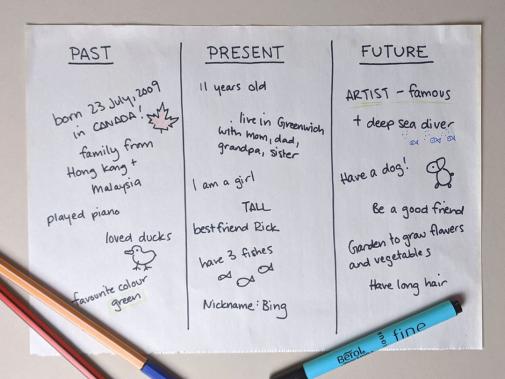 PAST
born 23 July, 2009
in CANADA!
family from
Hong Kong +
Malaysia
played piano
loved ducks
favourite colour
green
PRESENT
11 years old
live in Greenwich
with mom, dad,
grandpa, sister
I am a girl
TALL
best friend Rick
have 3 fishes
Nickname: Bing
FUTURE
ARTIST – famous
+ deep sea diver
Have a dog!
Be a good friend
Garden to grow flowers
and vegetables
Have long hair
Berol fine